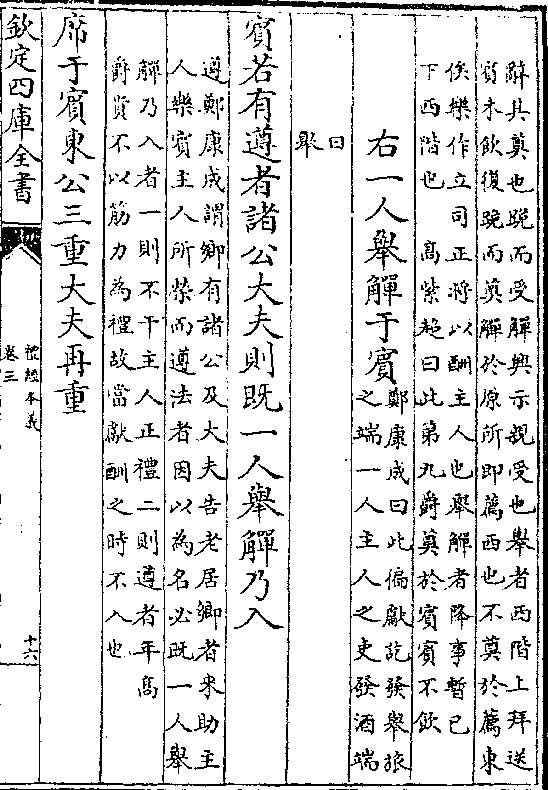 辭其奠也跪而受觶興示親受也舉者西階上拜送
賓未飲復跪而奠觶於原所即薦西也不奠於薦東
俟樂作立司正將以酬主人也舉觶者降事暫已
下西階也　髙紫超曰此第九爵奠於賓賓不飲
右一人舉觶于賓
鄭康成曰此偏獻訖發舉旅
之端一人主人之吏發酒端
曰
舉
賓若有遵者諸公大夫則既一人舉觶乃入
遵鄭康成謂鄉有諸公及大夫告老居鄉者来助主
人樂賓主人所榮而遵法者因以為名必既一人舉
觶乃入者一則不干主人正禮二則遵者年髙
爵貴不以筋力為禮故當獻酬之時不入也
席于賓東公三重大夫再重
欽定四庫全書
禮經本義
卷三
十六